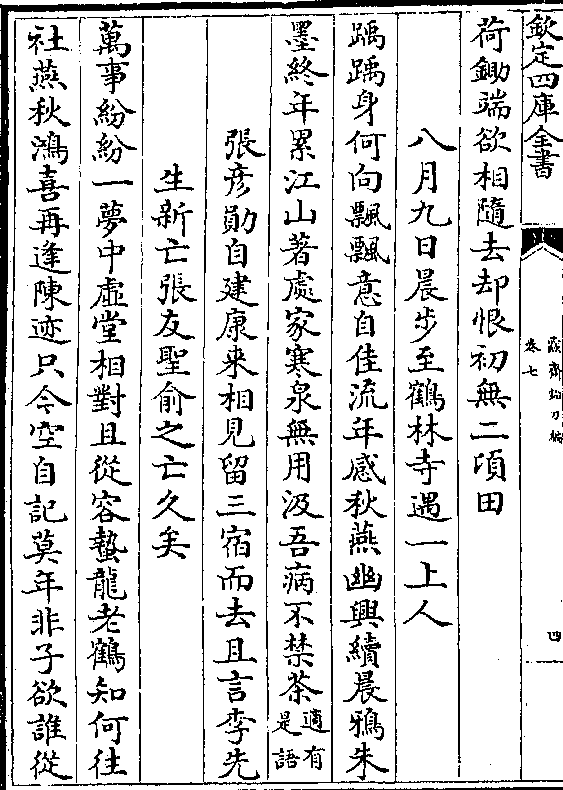 欽定四庫全書
卷七
四
荷鋤端欲相隨去却恨初無二頃田
八月九日晨步至鶴林寺遇一上人
踽踽身何向飄飄意自佳流年感秋燕幽興續晨鴉朱
墨終年累江山著處家寒泉無用汲吾病不禁茶適有是語
張彦勛自建康来相見留三宿而去且言李先
生新亡張友聖俞之亡久矣
萬事紛紛一夢中虚堂相對且從容蟄龍老鶴知何往
社燕秋鴻喜再逢陳迹只今空自記莫年非子欲誰從